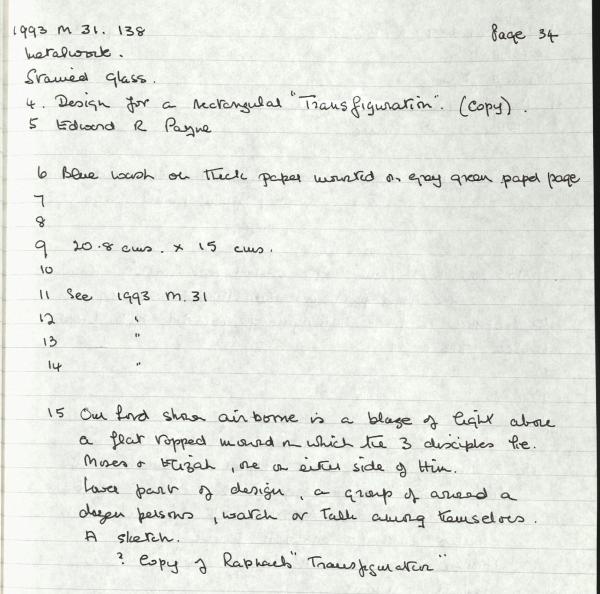 1993 M 31. 138 Page 34
Metalwork.
Stained Glass.
4. Design for a rectangular "Transfiguration". (copy).
5 Edward R Payne
6 Blue wash on thick paper mounted on gray green paper page
7
8
9 20.8 cms. x 15 cms.
10
11 See 1993 M.31
12 "
13 "
14 "
15 Our Lord shown airborne in a blaze of light above
a flat topped mound on which the 3 disciples lie.
Moses & Elijah, one on either side of Him.
Lower part of design, a group of around a
dozen persons, watch or talk among themselves.
A sketch.
? Copy of Raphael's "Transfiguration"